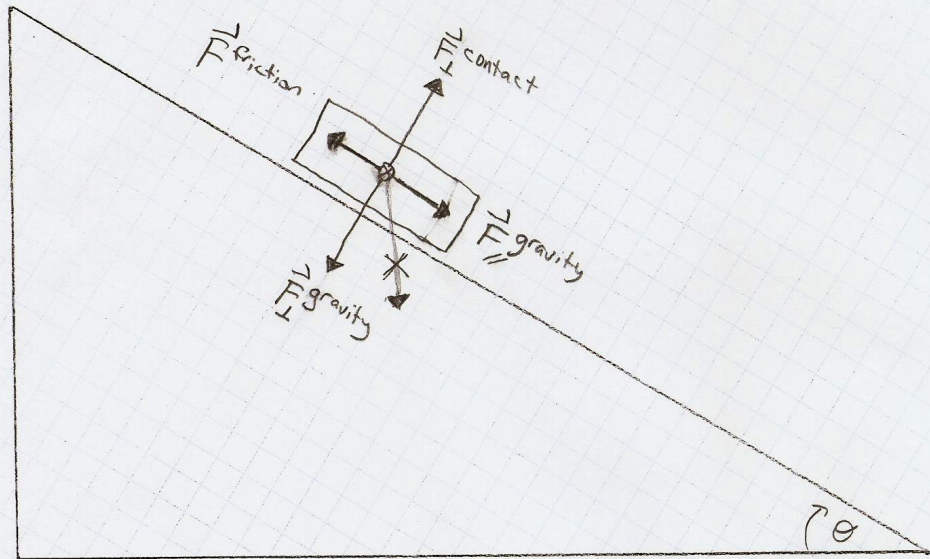 F⃗ friction
F⃗⊥ contact
F⃗∥ gravity
F⃗⊥ gravity
θ